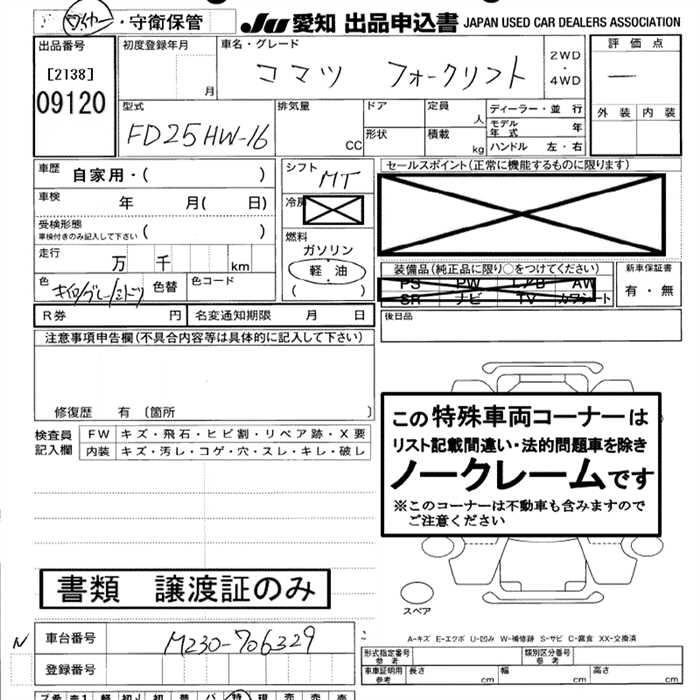 ・守衛保管
JU 愛知 出品申込書 JAPAN USED CAR DEALERS ASSOCIATION
出品番号
[2138]
09120
初度登録年月
月
車名・グレード
コマツ フォークリフト
2WD
・
4WD
評価点
外装 内装
型式
FD25HW-16
排気量
CC
ドア
形状
定員
人
積載
kg
ディーラー・並 行
モデル年式 年
ハンドル 左・右
車歴
自家用・( )
車検
年 月( 日)
受検形態
車検付きのみ記入して下さい ( )
走行
万 千 km
色
色替
色コード
シフト
MT
冷房
燃料
ガソリン
軽 油
( )
セールスポイント(正常に機能するものに限ります)
装備品(純正品に限り○をつけてください)
PS PW エアB AW
SR ナビ TV カワシート
新車保証書
有・無
R券 円
名変通知期限 月 日
後日品
注意事項申告欄(不具合内容等は具体的に記入して下さい)
修復歴 有 〔箇所 〕
検査員
記入欄
FW キズ・飛石・ヒビ割・リペア跡・X要
内装 キズ・汚レ・コゲ・穴・スレ・キレ・破レ
この特殊車両コーナーは
リスト記載間違い・法的問題車を除き
ノークレームです
※このコーナーは不動車も含みますので
ご注意ください
書類 譲渡証のみ
スペア
A-キズ E-エクボ U-凹み W-補修跡 S-サビ C-腐食 XX-交換済
N
車台番号
M230-706329
登録番号
形式指定番号
参考
類別区分番号
参考
車車証明用
参考
長さ cm
幅 cm
高さ cm